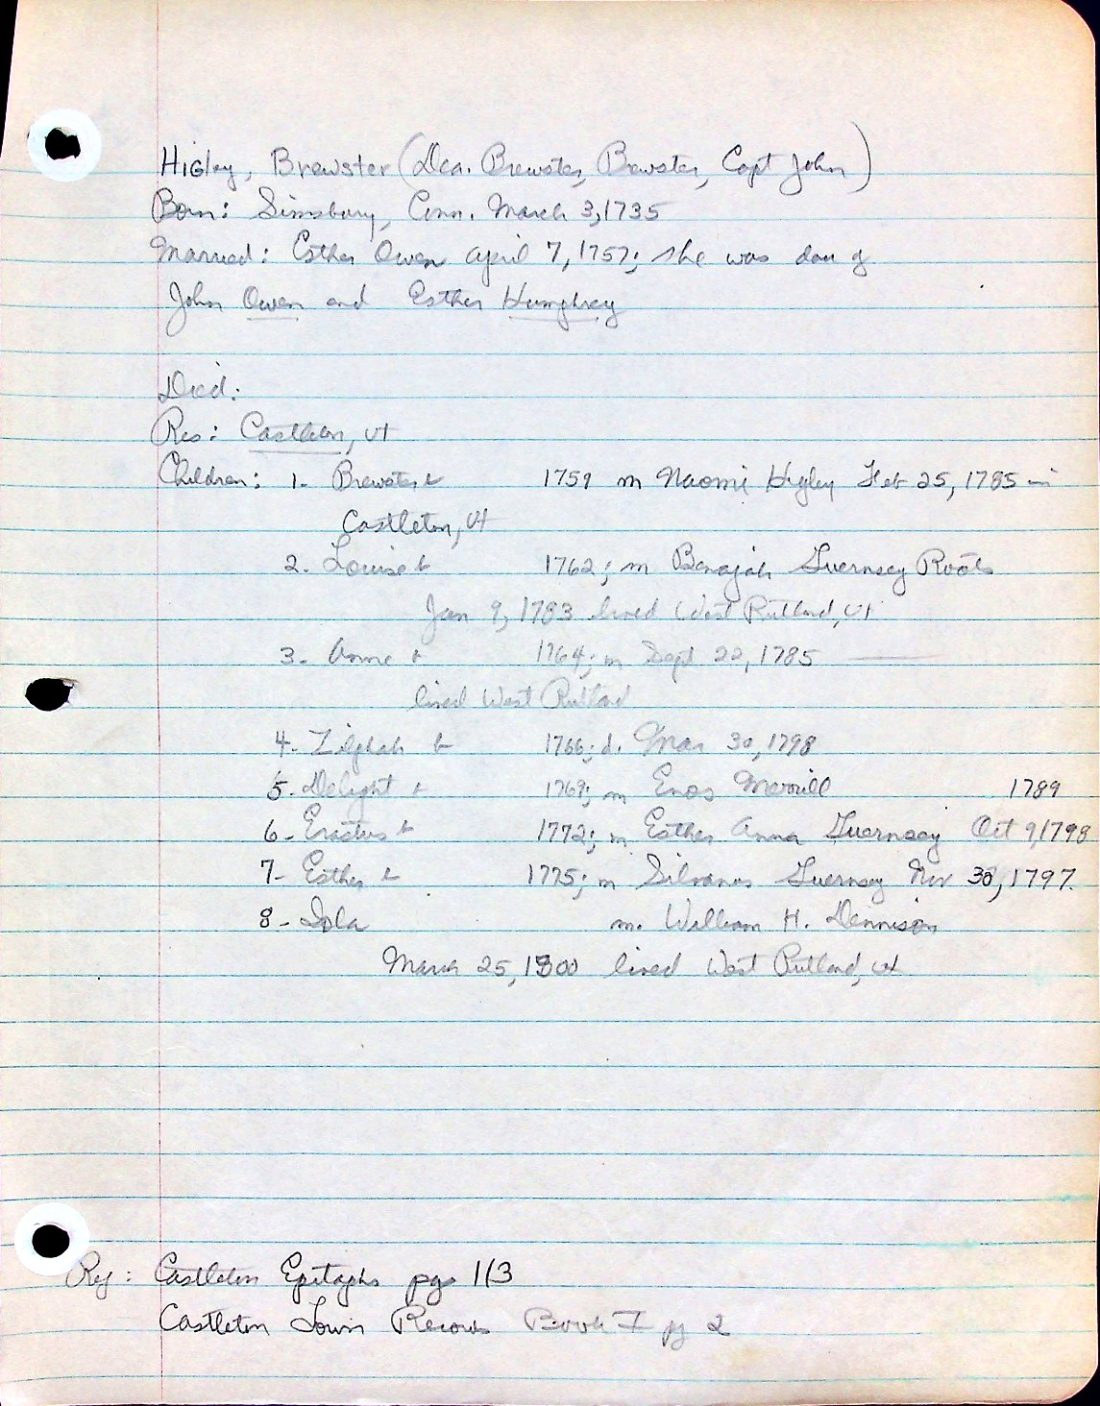 Higley, Brewster (Dea. Brewster, Brewster, Capt John)
Born: Simsbury, Conn. March 3, 1735
Married: Esther Owen April 7, 1757; she was dau of
John Owen and Esther Humphrey
Died:
Res: Castleton, Vt
Children: 1. Brewster b 1759 m Naomi Higley Feb 25, 1785 in
Castleton, Vt
2. Louise b 1762; m Benajah Guernsey Roots
Jan 9, 1783 lived West Rutland, Vt
3. Anne b 1764; m Sept 22, 1785 ———
lived West Rutland
4- Zilphah b 1766; d. Mar 30, 1798
5. Delight b 1769; m Enos Merrill 1789
6- Erastus b 1772; m Esther Anna Guernsey Oct 9, 1798
7- Esther b 1775; m Silvanus Guernsey Nov 30, 1797.
8- Iola m. William H. Dennison
March 25, 1800 lived West Rutland, Vt
Ref: Castleton Epitaphs pgs 113
Castleton Town Records Book I pg 2